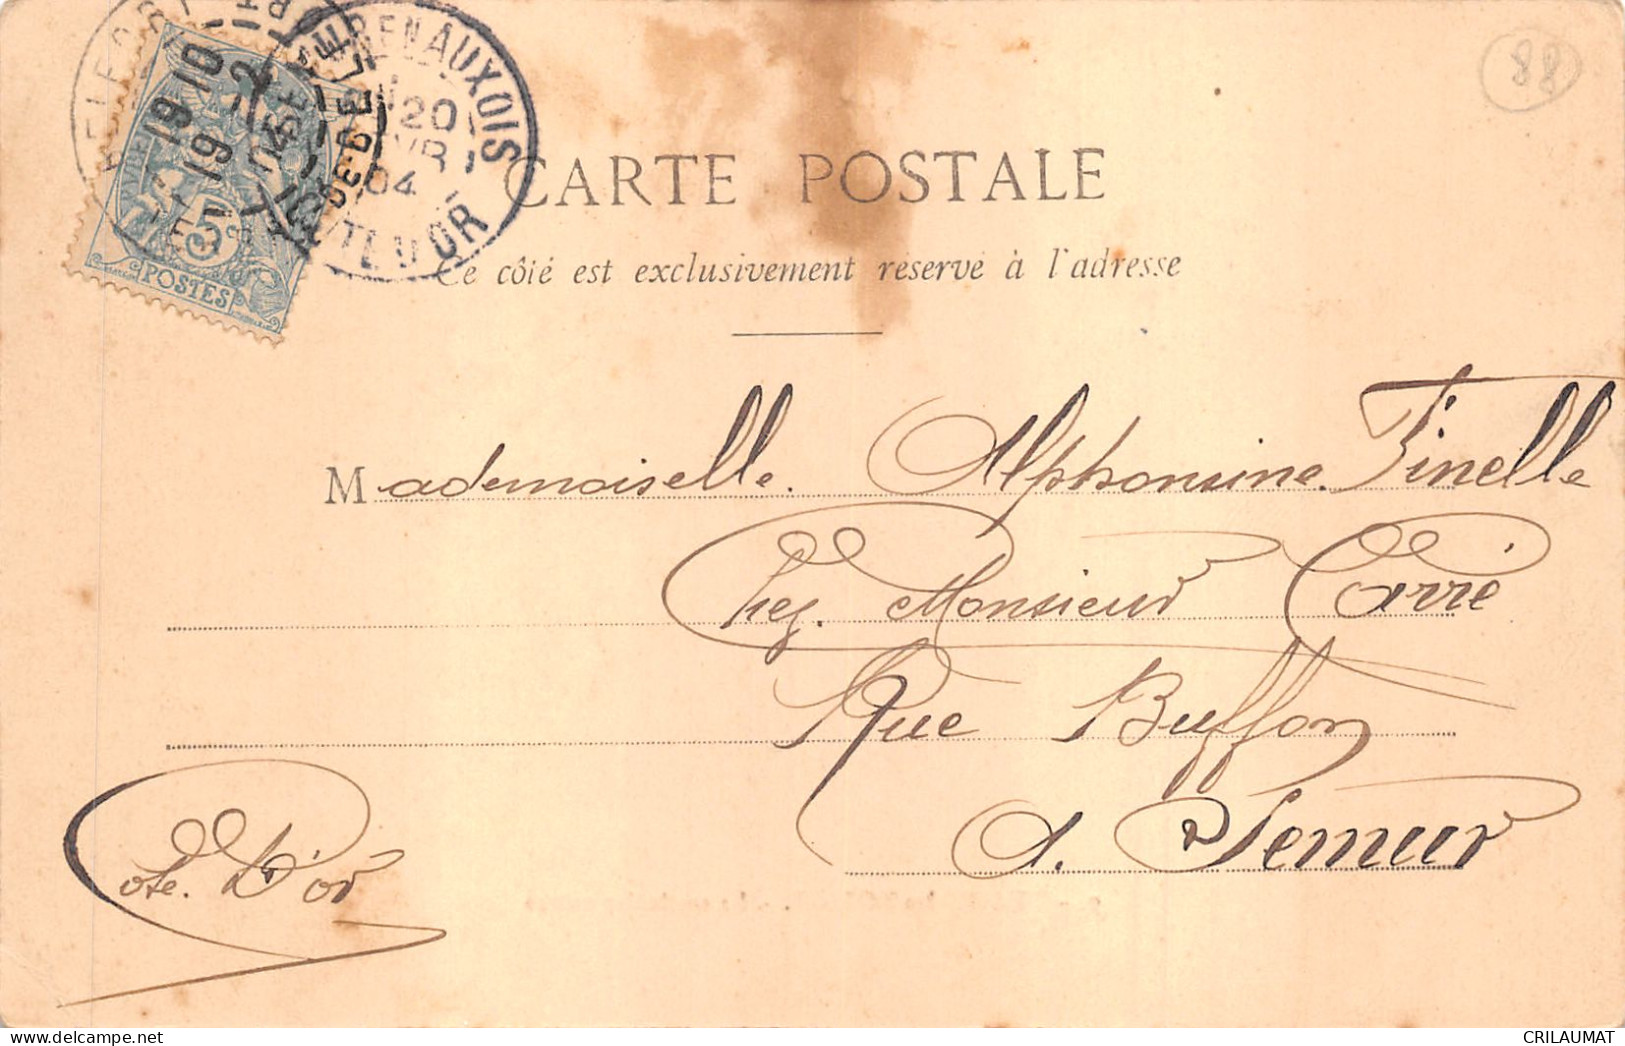 88
SEMUR EN AUXOIS
20
04
CÔTE D'OR
19 10
19
5c
POSTES
CARTE POSTALE
Ce côté est exclusivement réservé à l'adresse
Mademoiselle Alphonsine Finelle
Chez Monsieur Carré
Rue Buffon
A. Semur
Côte. D'or
CRILAUMAT